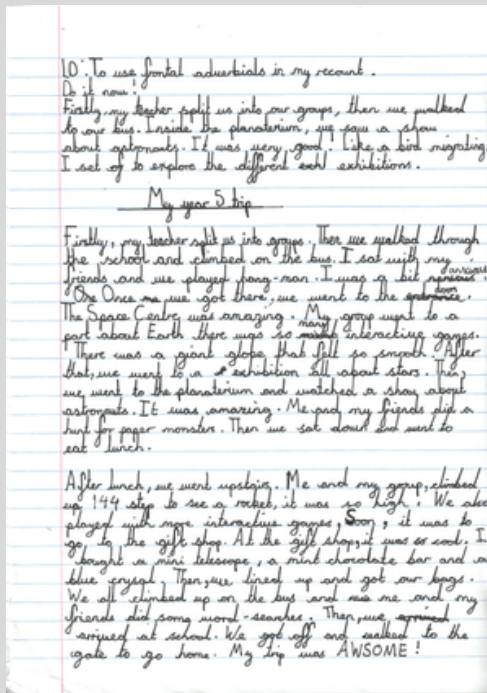 LO: To use frontal adverbials in my recount.
Do it now!
Firstly, my teacher split us into our groups, then we walked
to our bus. Inside the planatarium, we saw a show
about astronauts. It was very good! Like a bird migrating,
I set of to explore the different exhi exhibitions.
My year 5 trip
Firstly, my teacher split us into groups. Then we walked through
the school and climbed on the bus. I sat with my
friends and we played hang-man. I was a bit
Once we got there, we went to the door
The Space Centre was amazing. My group went to a
part about Earth there was so many interactive games.
There was a giant globe that felt so smooth. After
that, we went to a exhibition all about stars. Then,
we went to the planatarium and watched a show about
astronauts. It was amazing. Me and my friends did a
hunt for paper monsters. Then we sat down and went to
eat lunch.
After lunch, we went upstairs. Me and my group, climbed
up 144 step to see a rocket, it was so high. We also
played with more interactive games, Soon, it was to
go, to the gift shop. At the gift shop, it was so cool. I
bought a mini telescope, a mint chocolate bar and a
blue crysal. Then, we lined up and got our bags.
We all climbed up on the bus and me and my
friends did some word-searches. Then, we
arrived at school. We got off and walked to the
gate to go home. My trip was AWSOME!